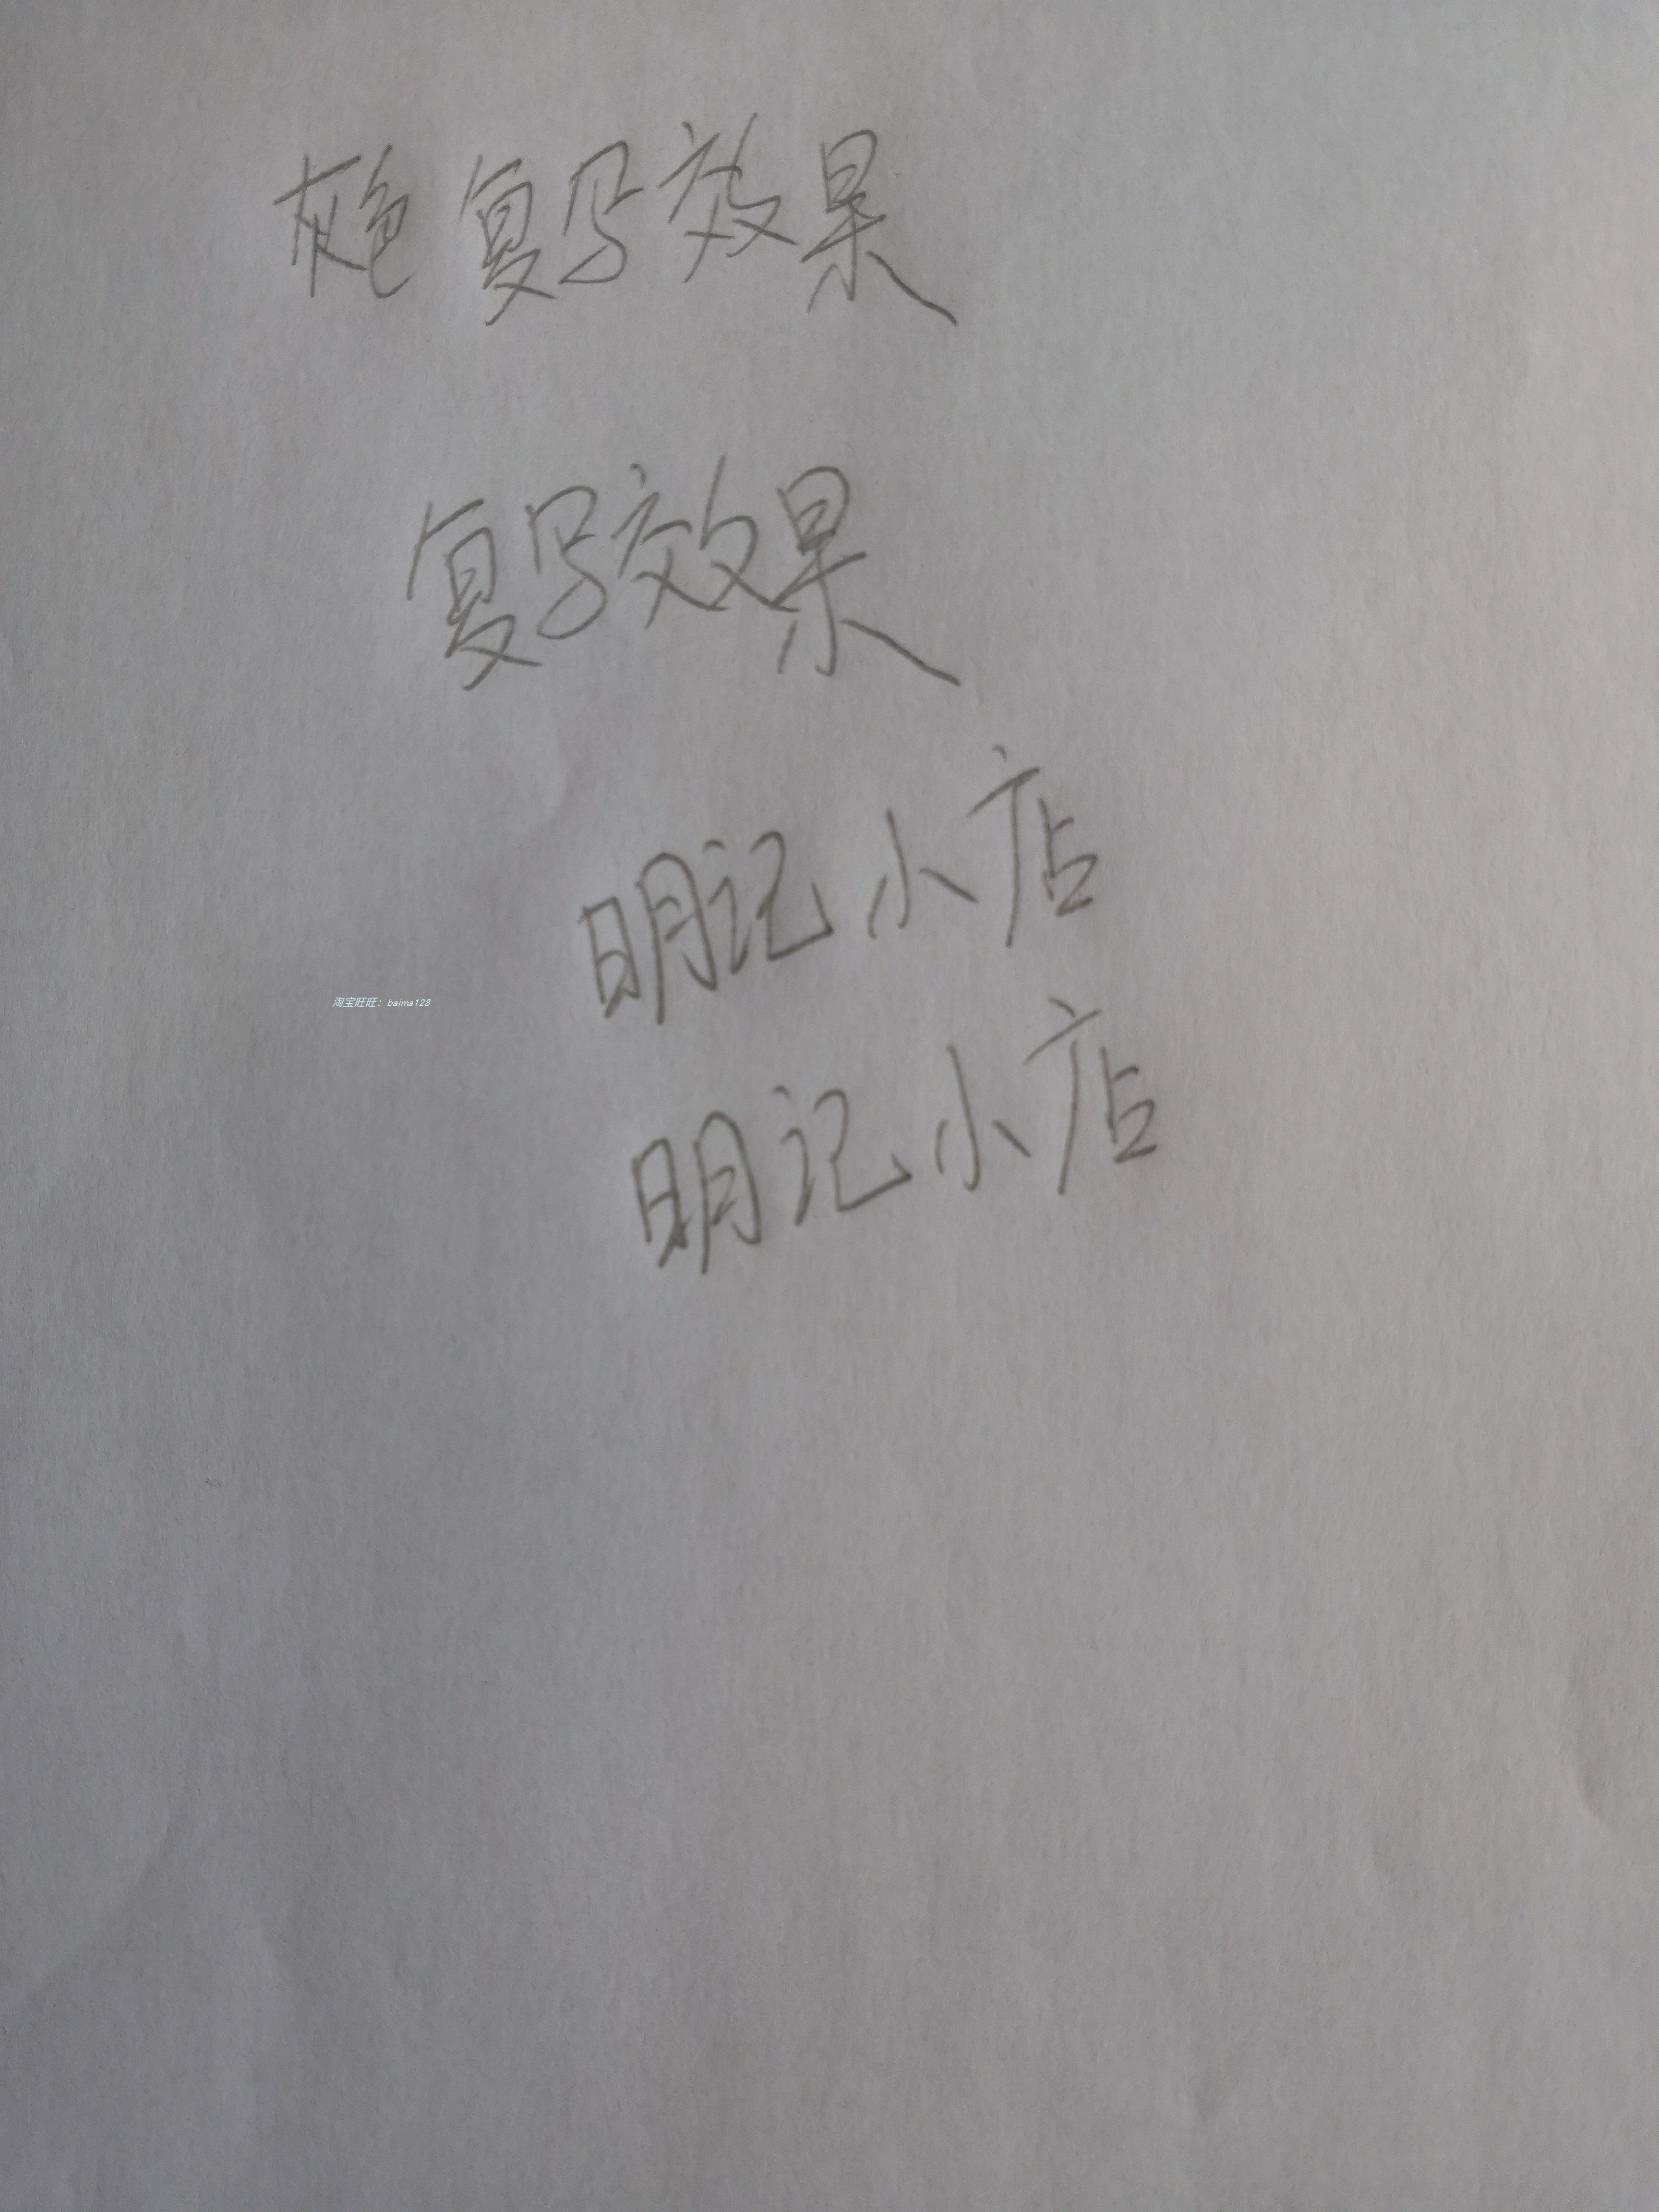 灰色复写效果
复写效果
明记小店
淘宝旺旺：baima128
明记小店